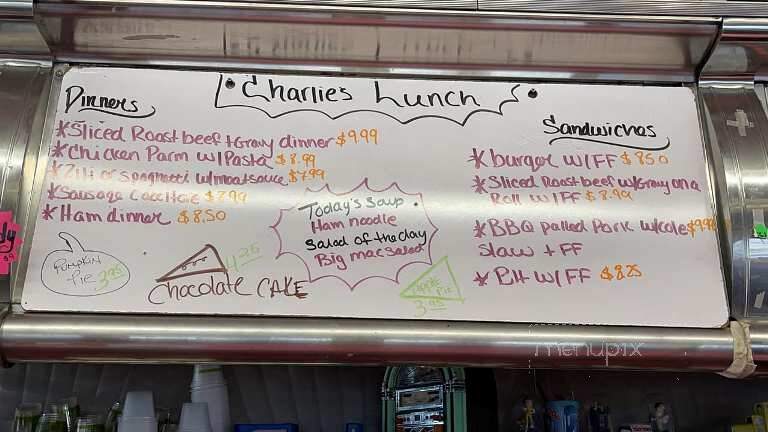 Charlie's Lunch
Dinners
*Sliced Roast beef + Gravy dinner $9.99
*Chicken Parm w/Pasta $8.99
*Ziti or Spaghetti w/meatsauce $7.99
*Sausage Cacc $7.99
*Ham dinner $8.50
Pumpkin
Pie 3.95
4.25
Chocolate CAKE
Today's Soup
Ham noodle
Salad of the day
Big mac salad
Apple
Pie
3.95
Sandwiches
*burger w/FF $8.50
*Sliced Roast beef w/Gravy on a
Roll w/FF $8.99
*BBQ pulled Pork w/cole $9.99
slaw + FF
*BLT w/FF $8.25
menupix